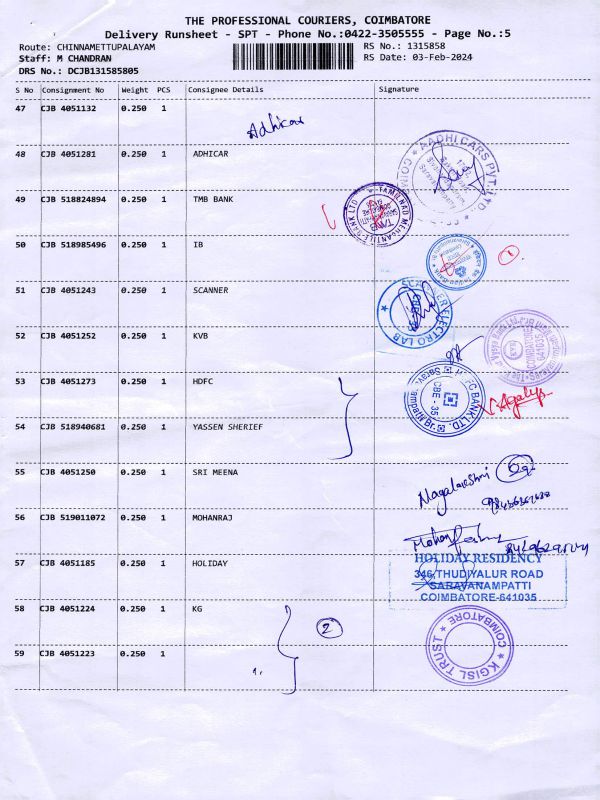 THE PROFESSIONAL COURIERS, COIMBATORE
Delivery Runsheet - SPT - Phone No.:0422-3505555 - Page No.:5
Route: CHINNAMETTUPALAYAM RS No.: 1315858
Staff: M CHANDRAN RS Date: 03-Feb-2024
DRS No.: DCJB131585805
S No Consignment No Weight PCS Consignee Details Signature
47 CJB 4051132 0.250 1
Adhicar
48 CJB 4051281 0.250 1 ADHICAR
AADHI CARS PVT. LTD
49 CJB 518824894 0.250 1 TMB BANK
TAMILNAD MERCANTILE BANK LTD
TMB
50 CJB 518985496 0.250 1 IB
1
51 CJB 4051243 0.250 1 SCANNER
SCANNER ELECTRO LAB
CBE-35
52 CJB 4051252 0.250 1 KVB
COIMBATORE
641035
53 CJB 4051273 0.250 1 HDFC
HDFC BANK LTD.
CBE - 35
54 CJB 518940681 0.250 1 YASSEN SHERIEF
55 CJB 4051250 0.250 1 SRI MEENA
56 CJB 519011072 0.250 1 MOHANRAJ
57 CJB 4051185 0.250 1 HOLIDAY
HOLIDAY RESIDENCY
346, THUDIYALUR ROAD
SARAVANAMPATTI
COIMBATORE-641035
58 CJB 4051224 0.250 1 KG
2
KGISL TRUST
COIMBATORE
59 CJB 4051223 0.250 1